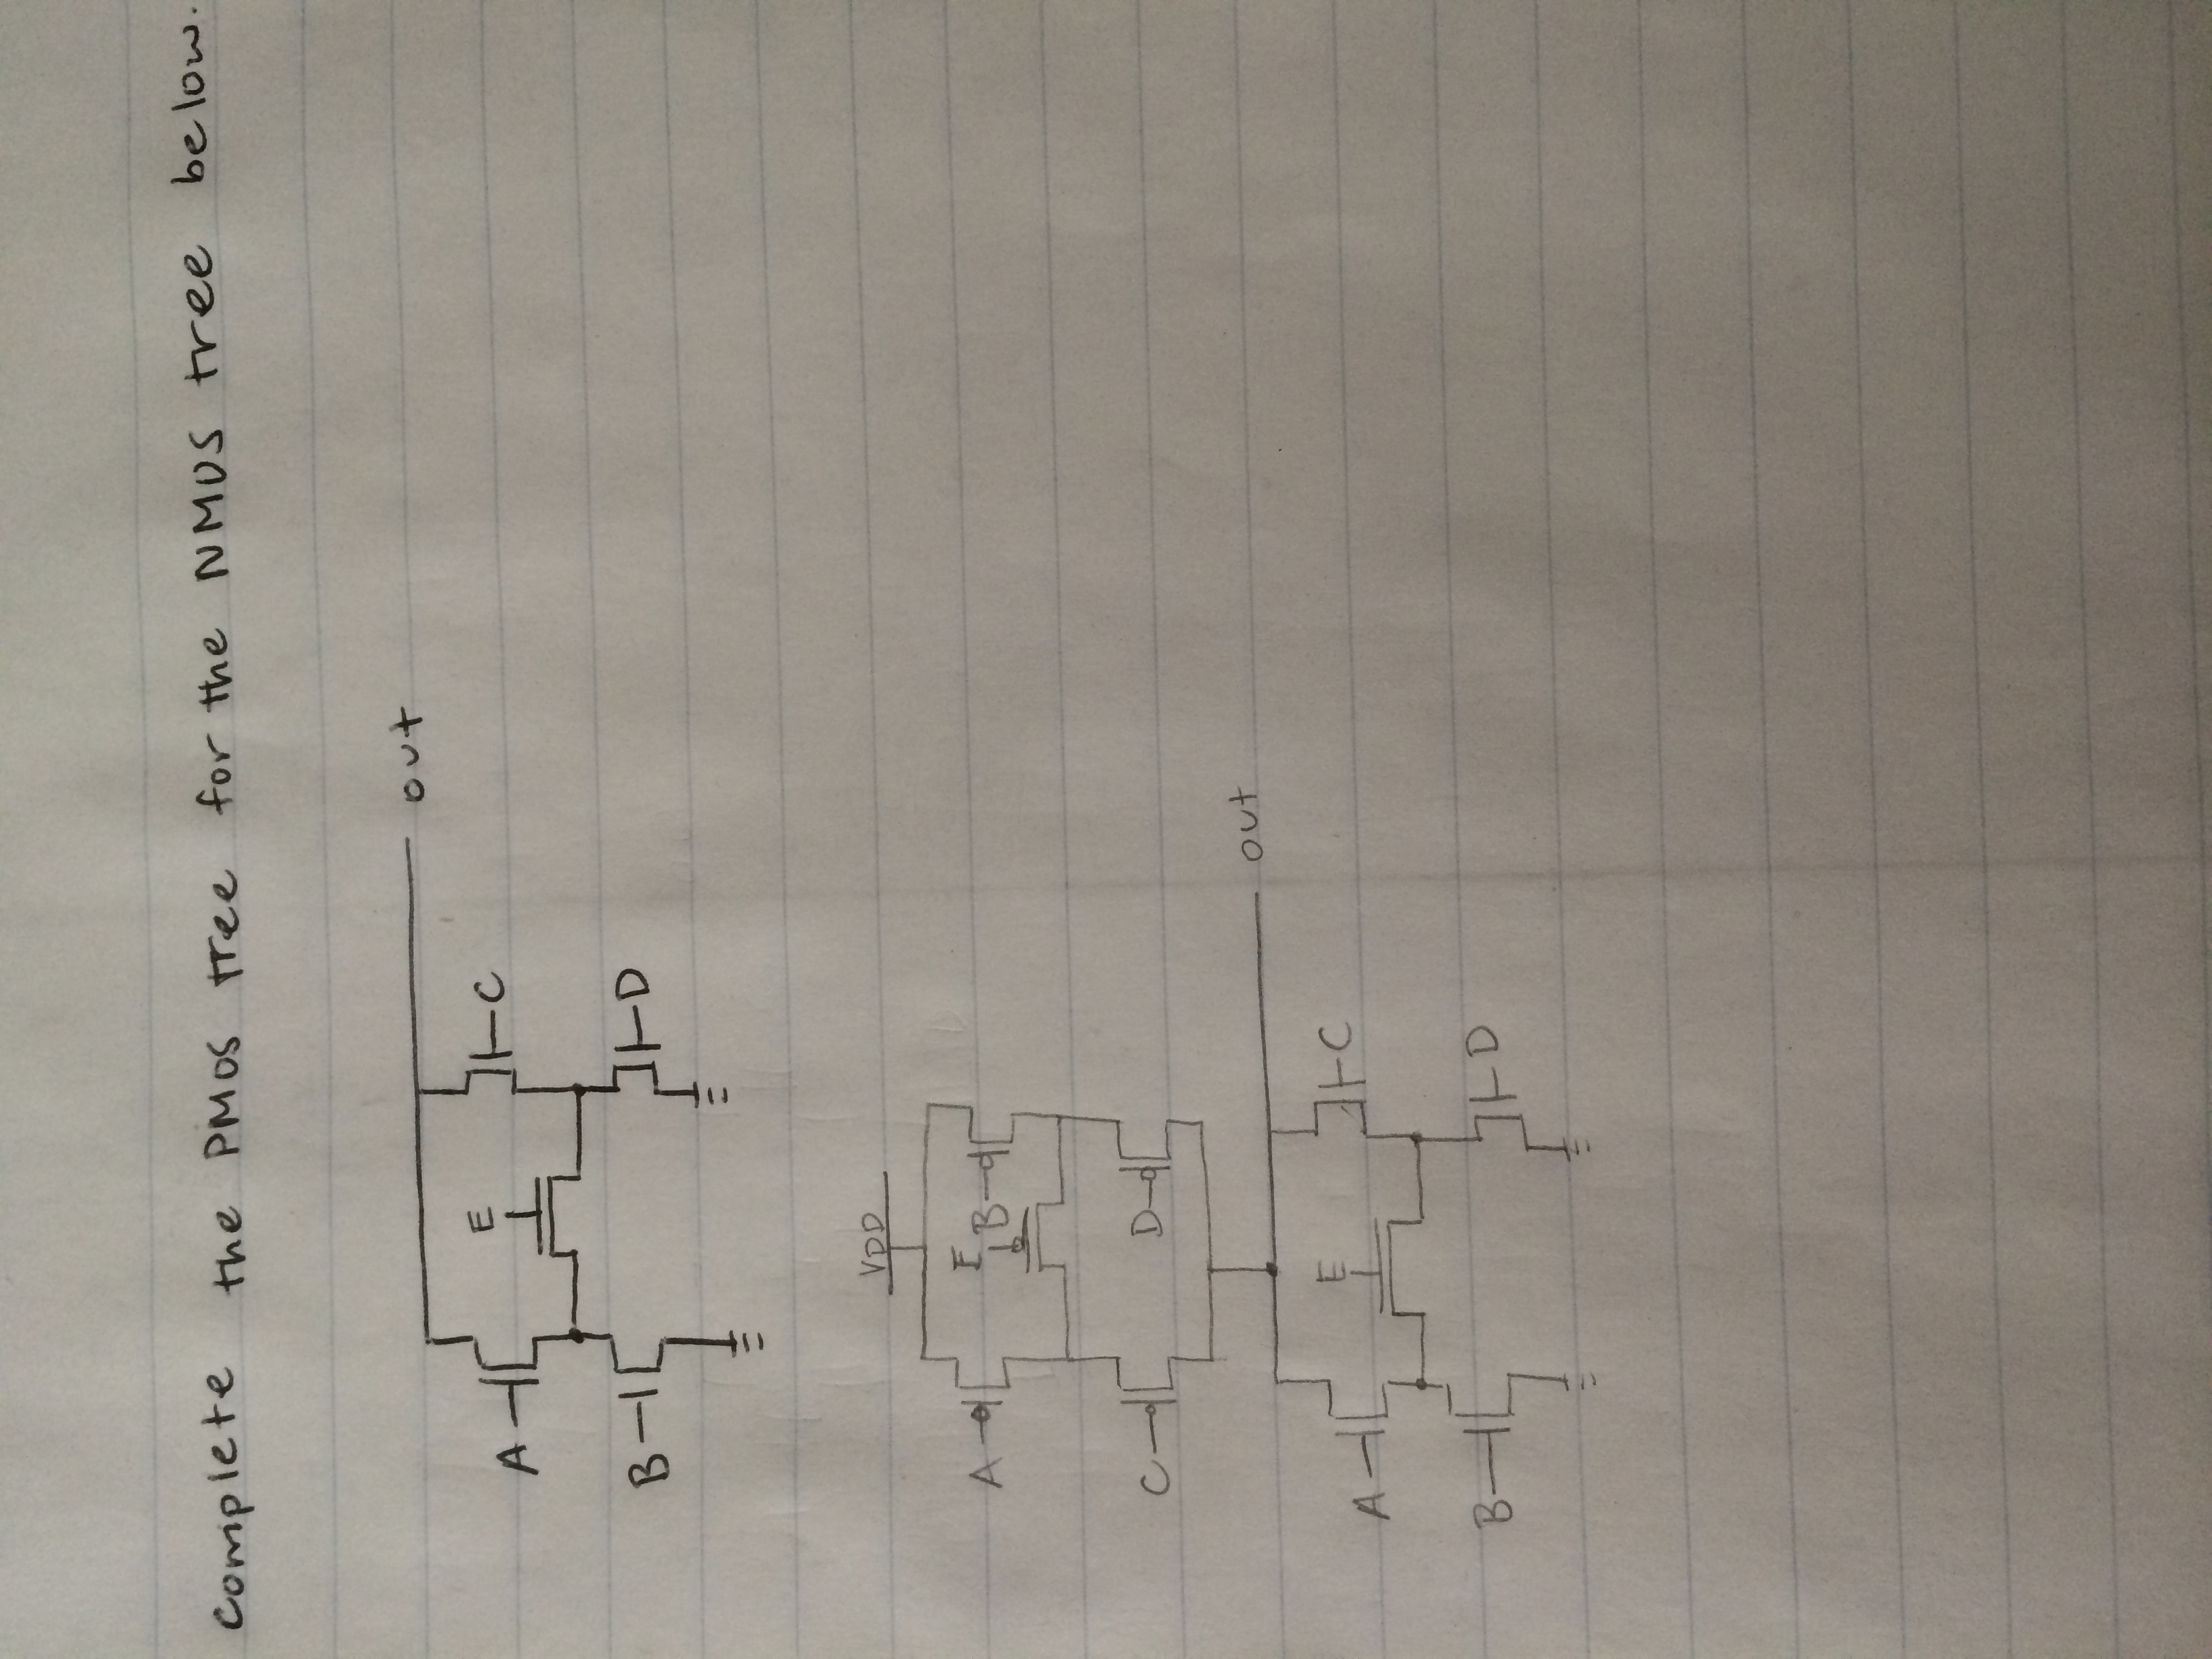 complete the PMOS tree for the NMOS tree below.
out
E
C
A
B
D
VDD
A
E
B
C
D
out
E
C
A
B
D